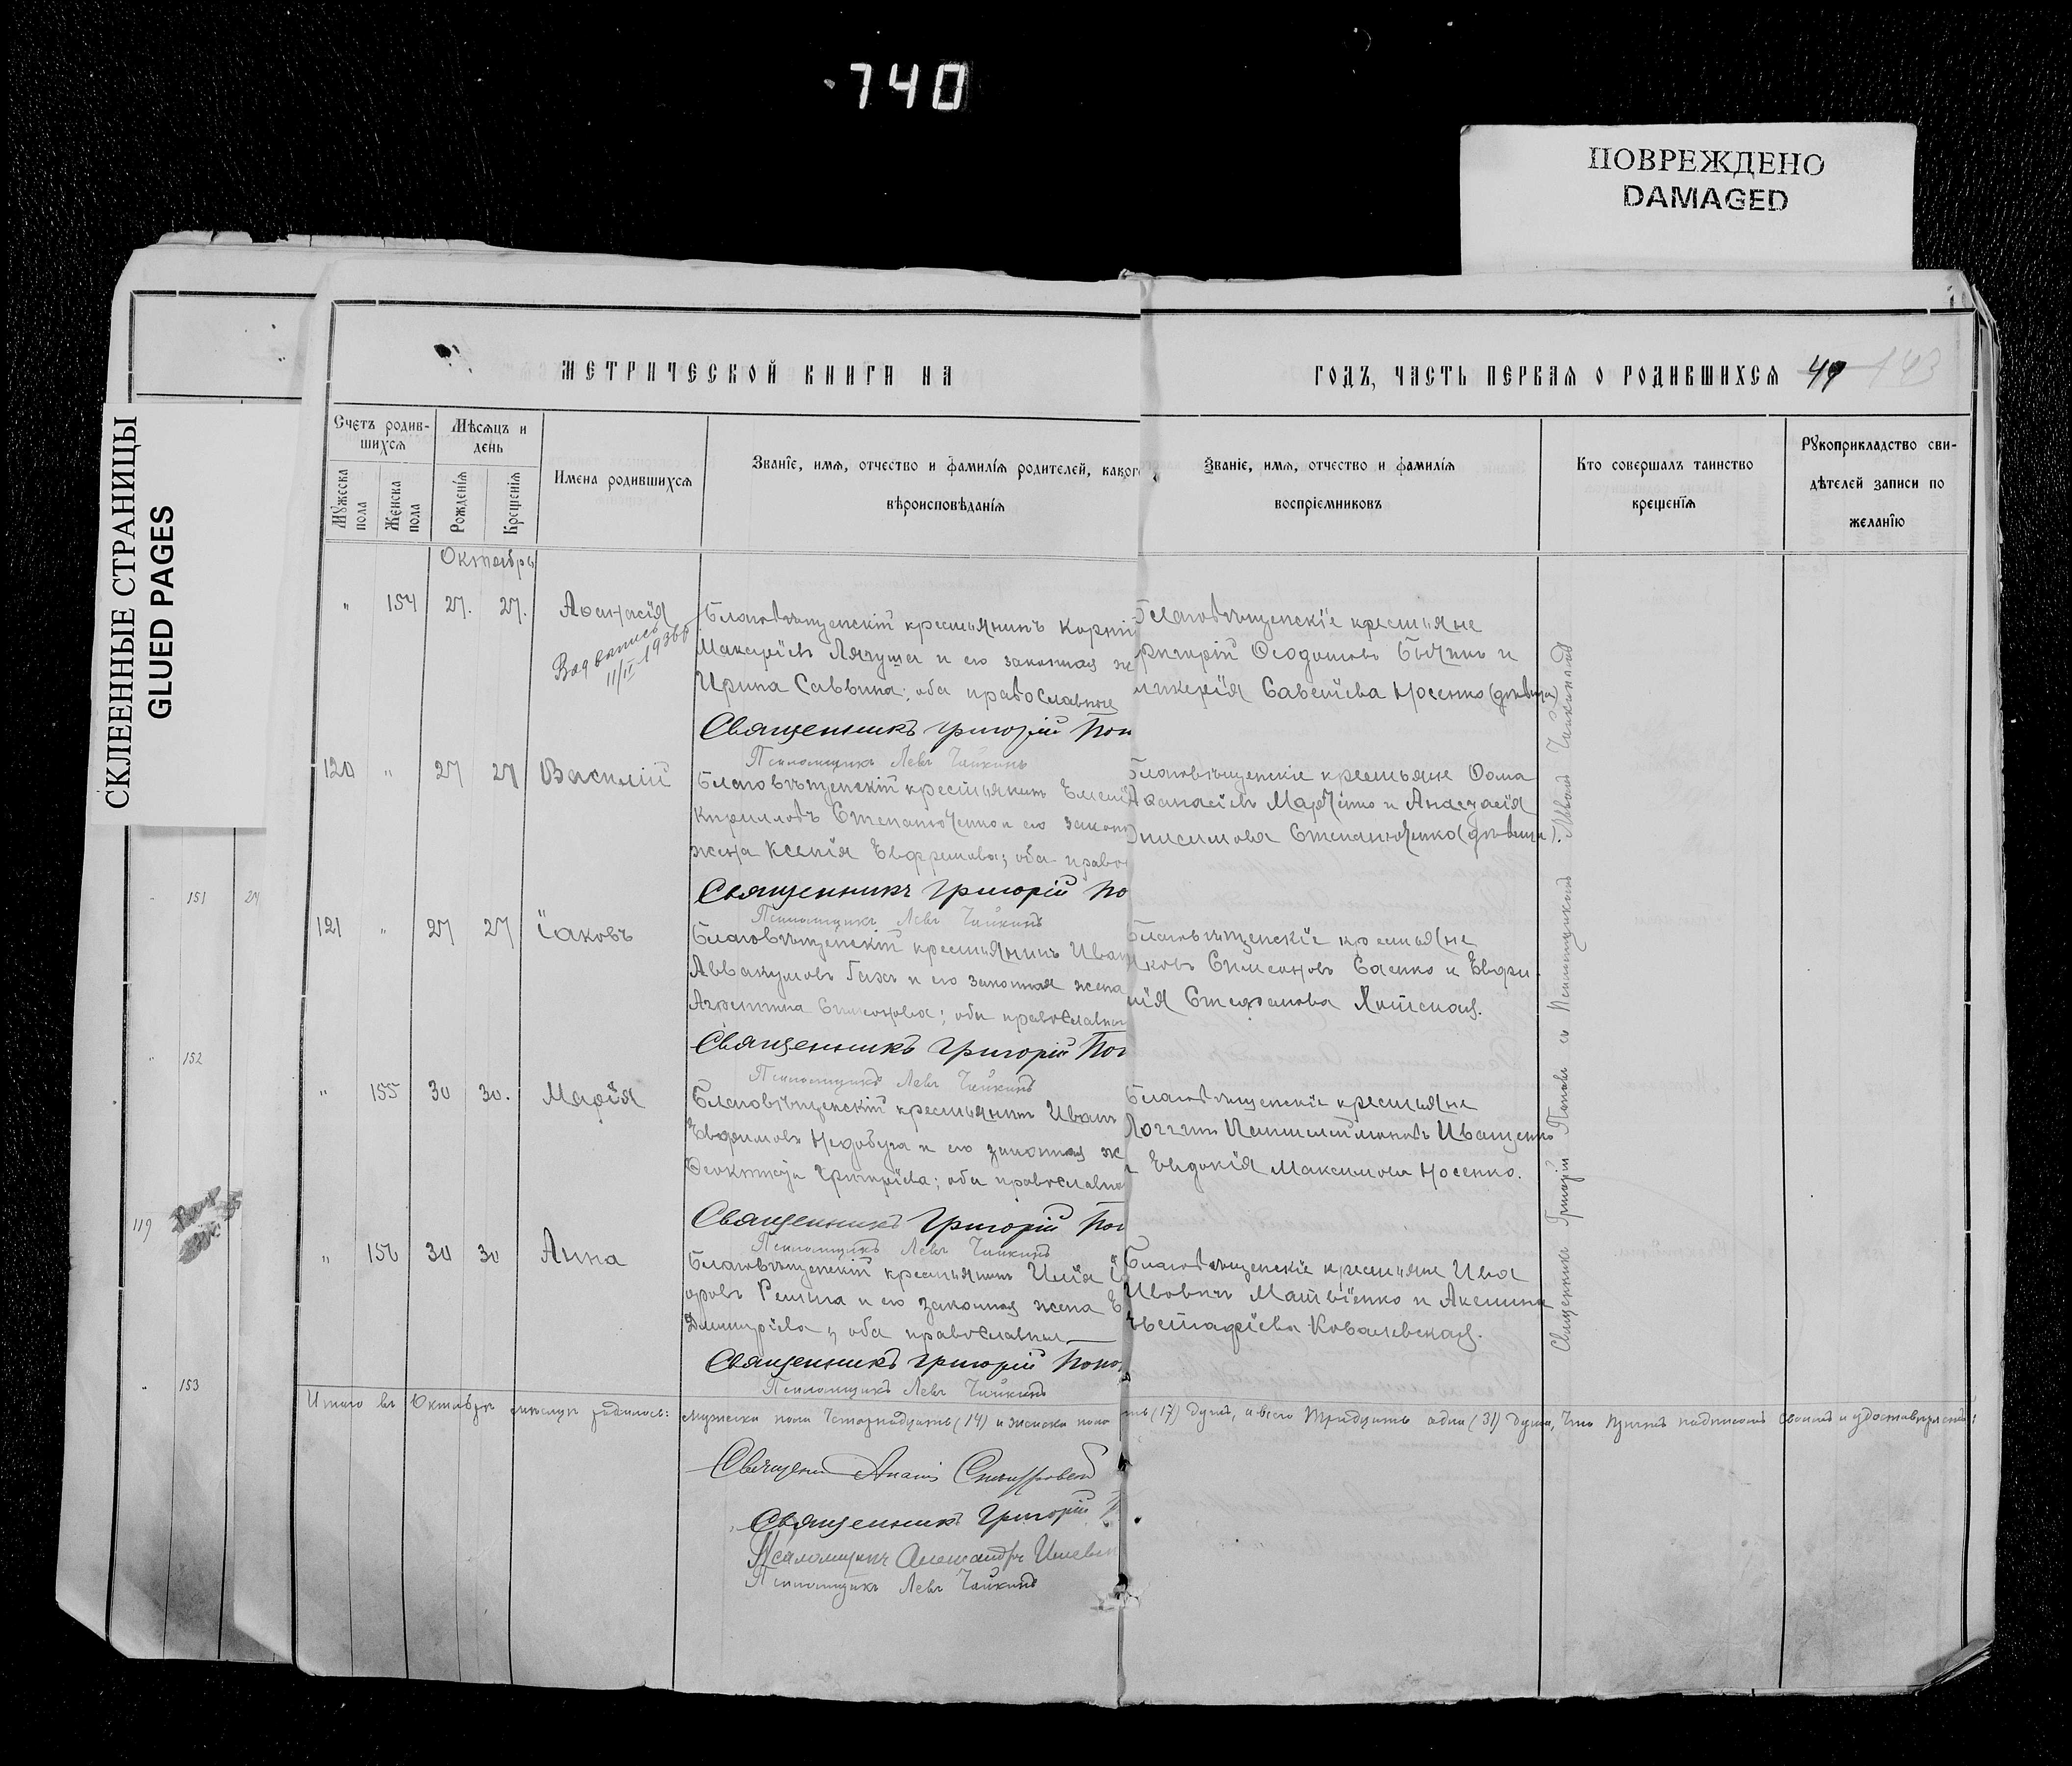 740
ПОВРЕЖДЕНО
DAMAGED
СКЛЕЕННЫЕ СТРАНИЦЫ
GLUED PAGES
МЕТРИЧЕСКОЙ КНИГИ НА
ГОДЪ, ЧАСТЬ ПЕРВАЯ О РОДИВШИХСЯ 49 143
Счетъ родив-
шихся
Мѣсяцъ и
день
Мужеска
пола
Женска
пола
Рожденія
Крещенія
Имена родившихся
Званіе, имя, отчество и фамилія родителей, каког
вѣроисповѣданія
Званіе, имя, отчество и фамилія
воспріемниковъ
Кто совершалъ таинство
крещенія
Рукоприкладство сви-
дѣтелей записи по
желанію
Октябрь
" 154 27. 27. Аѳанасія
11/II-1936
Благовѣщенскій крестьянинъ Корній
Ирина Саввина; оба православные
Священникъ Григорій Поп
Псаломщикъ Левъ Чайкинъ
Благовѣщенскіе крестьяне
Григорій Ѳеодотовъ и
Савеліева Носенко (дѣвица)
120 " 27 27 Василій
Благовѣщенскій крестьянинъ
Кирилловъ Степанюченко и его закон
жена Ксенія Евфремова; оба право
Священникъ Григорій По
Псаломщикъ Левъ Чайкинъ
Благовѣщенскіе крестьяне Ѳома
Аѳанасіевъ Марченко и Анастасія
Онисимова Степанюченко (дѣвица).
121 " 27 27 Іаковъ
Благовѣщенскій крестьянинъ Иван
Аввакумовъ и его законная жена
Симеонова; оба православны
Священникъ Григорій Поп
Псаломщикъ Левъ Чайкинъ
Благовѣщенскіе крестьяне
Яковъ Симеоновъ Саенко и Евфи
мія Стефанова
" 155 30 30. Марія
Благовѣщенскій крестьянинъ Иванъ
Евфимовъ и его законная ж
Григоріева; оба православны
Священникъ Григорій Поп
Псаломщикъ Левъ Чайкинъ
Благовѣщенскіе крестьяне
Логгинъ Пантелеймоновъ Иващенко
и Евдокія Максимова Носенко.
" 156 30 30 Анна
Благовѣщенскій крестьянинъ Илія
и его законная жена Е
Димитріева; оба православные
Священникъ Григорій Попо
Псаломщикъ Левъ Чайкинъ
Благовѣщенскіе крестьяне Ива
Матвіенко и Акилина
Евстафіева Ковалевская.
Священникъ Григорій Поповъ съ Псаломщикомъ Львомъ Чайкинымъ
Итого въ Октябрѣ мѣсяцѣ родилось: мужеска пола Четырнадцать (14) и женска пола ть (17) душъ, а всего Тридцать одна (31) душа, Что причтъ подписомъ своимъ и удостовѣряетъ:
Священникъ Григорій П
Псаломщикъ Александръ
Псаломщикъ Левъ Чайкинъ
151 24
" 152
119
" 153